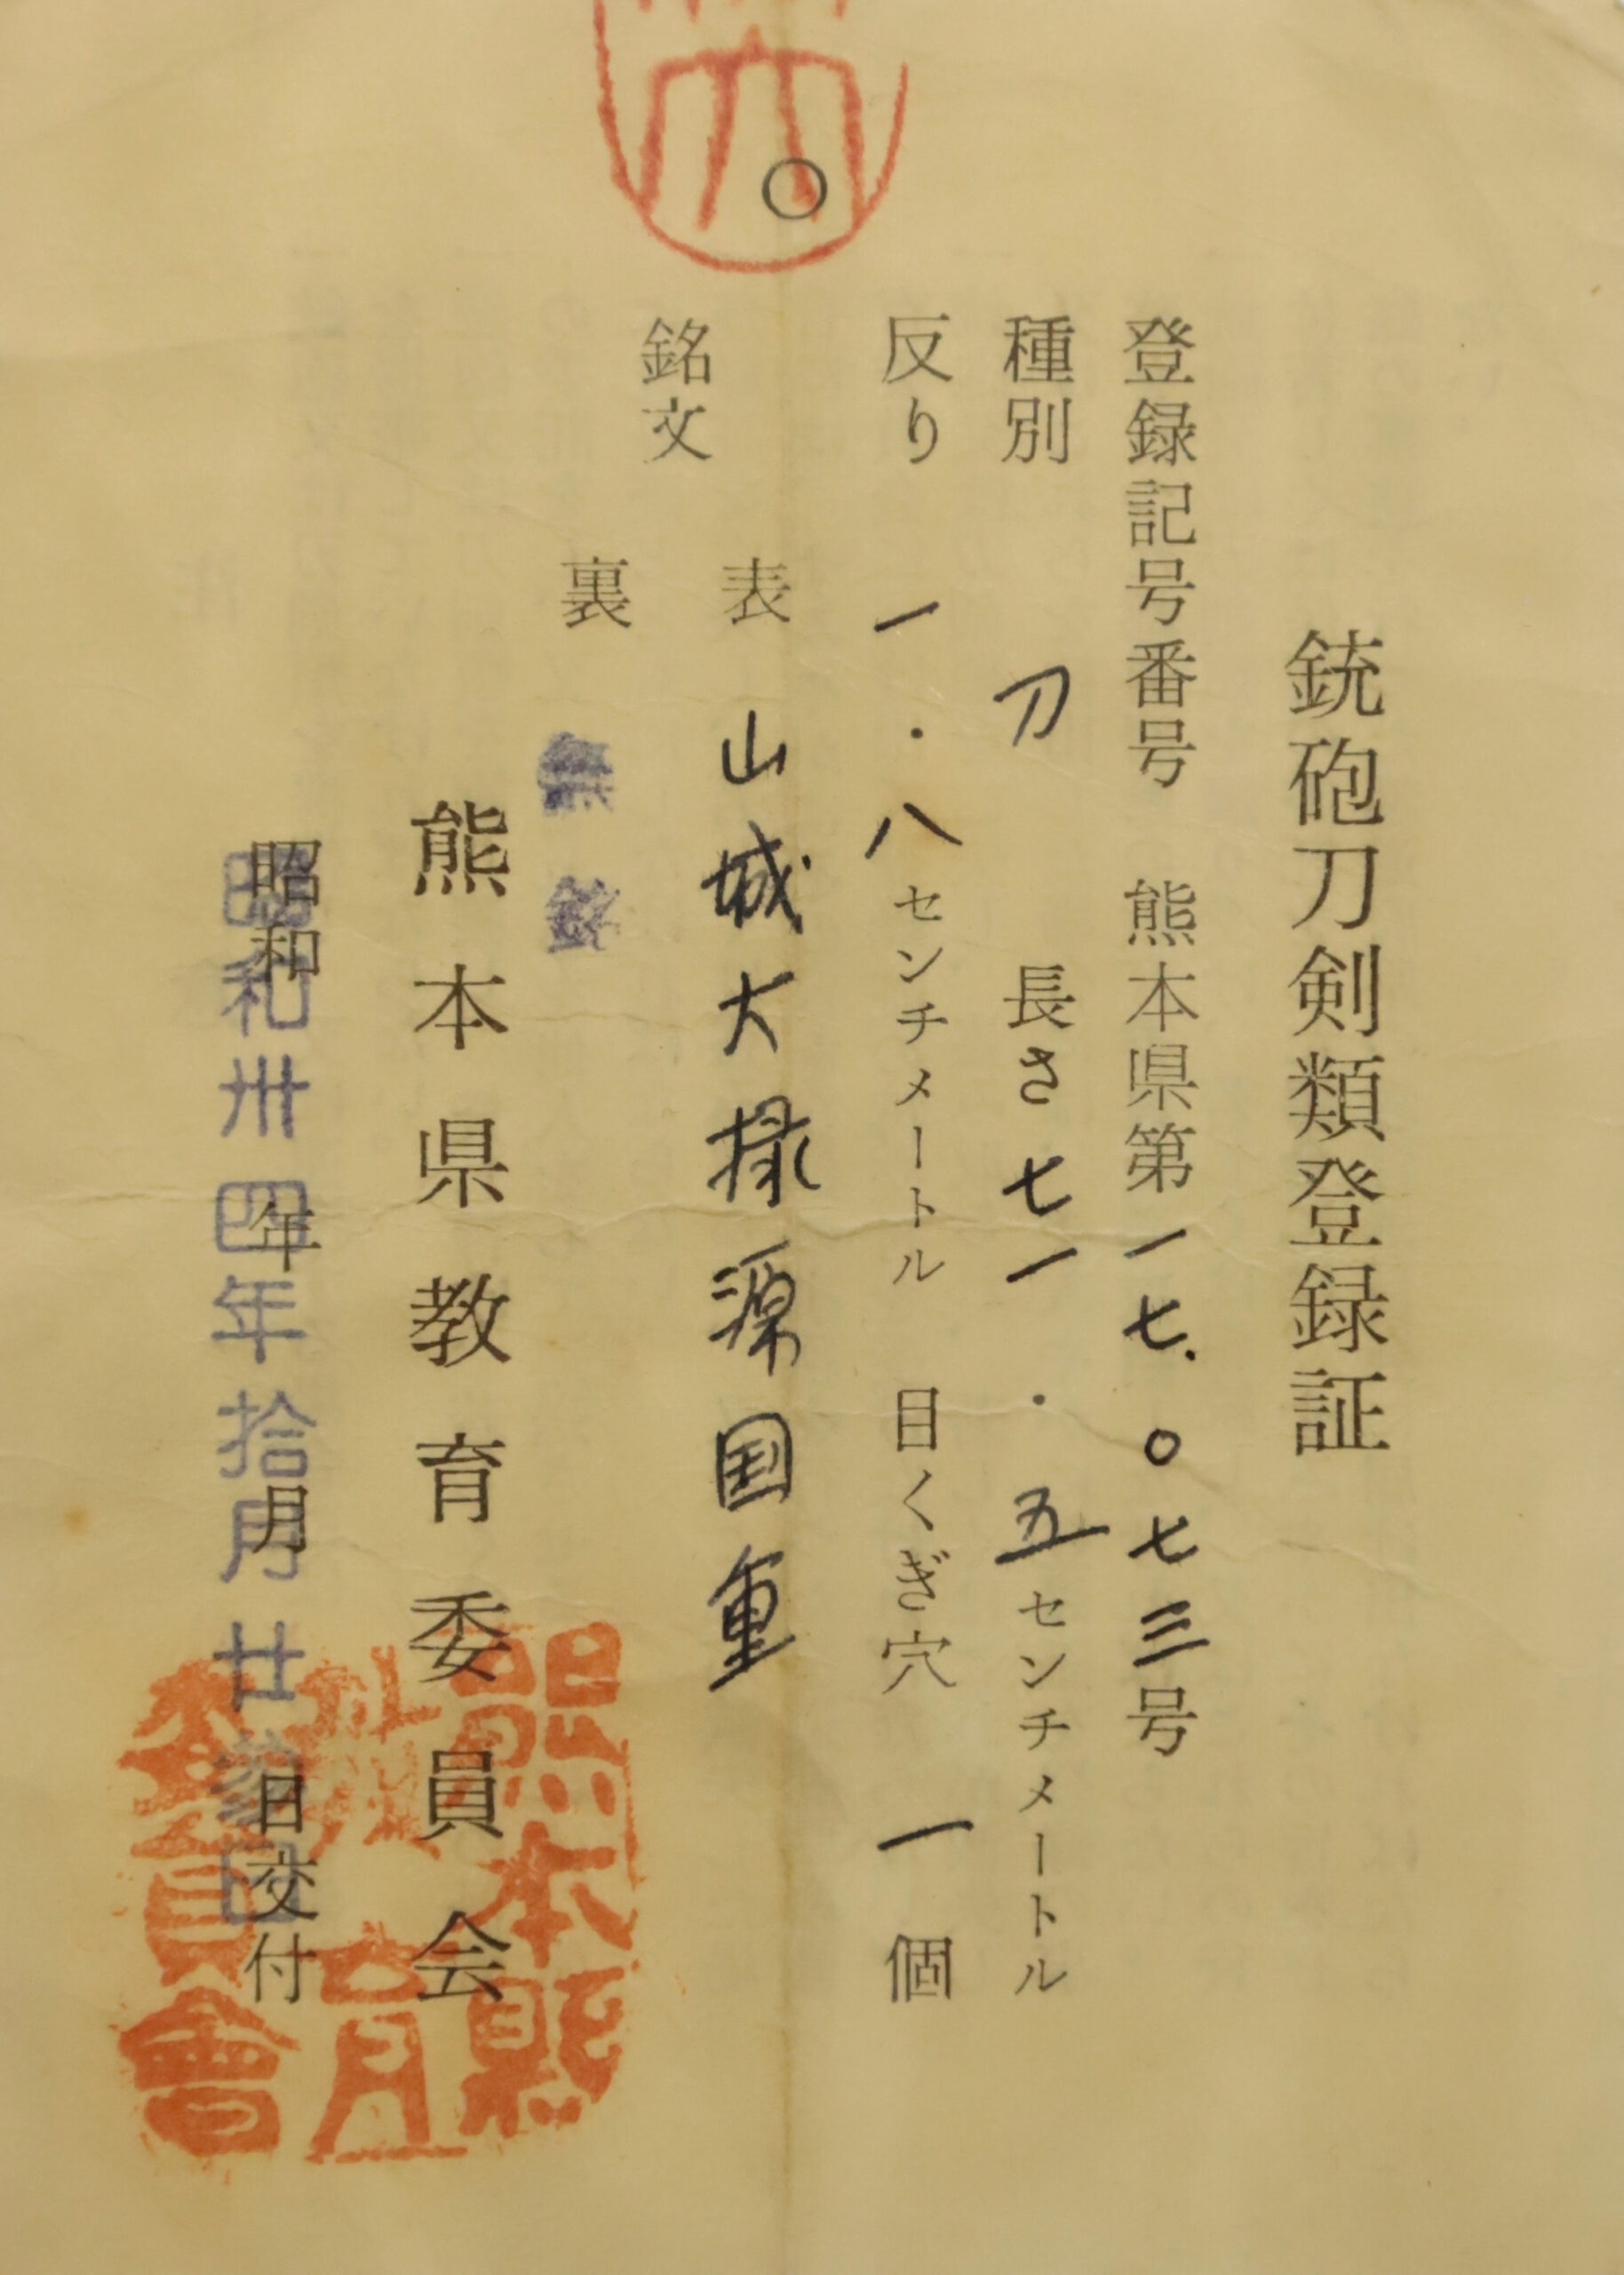 銃砲刀剣類登録証
登録記号番号 熊本県第一七.〇七三号
種別 刀 長さ 七一.五センチメートル
反り 一.八センチメートル 目くぎ穴 一個
銘文
表 山城大掾源国重
裏 無銘
熊本県教育委員会
昭和 年 月 日交付
昭和卅四年拾月廿参日
熊本縣
教育
委員會